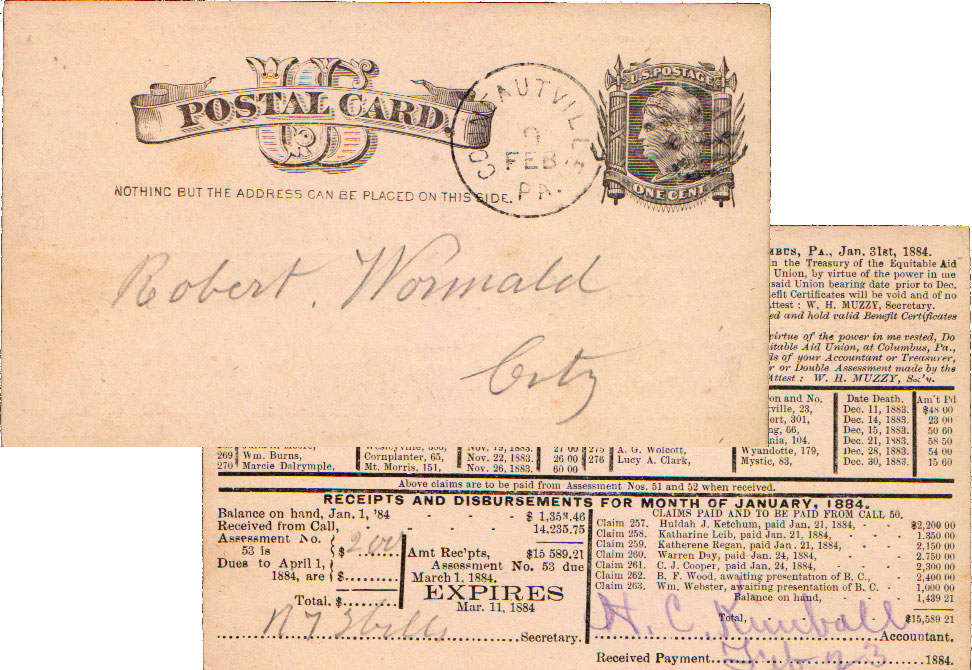 U.S.
POSTAL CARD.
NOTHING BUT THE ADDRESS CAN BE PLACED ON THIS SIDE.
CONNEAUTVILLE
9
FEB
PA.
U.S. POSTAGE
ONE CENT
Robert. Wormald
City
MBUS, PA., Jan. 31st, 1884.
n the Treasury of the Equitable Aid
Union, by virtue of the power in me
said Union bearing date prior to Dec.
efit Certificates will be void and of no
ttest : W. H. MUZZY, Secretary.
ed and hold valid Benefit Certificates
virtue of the power in me vested, Do
itable Aid Union, at Columbus, Pa.,
ls of your Accountant or Treasurer,
r or Double Assessment made by the
Attest : W. H. MUZZY, Sec'y.
on and No. Date Death. Am't Pd
ville, 23, Dec. 11, 1883. $48 00
ort, 301, Dec. 14, 1883. 23 00
ng, 66, Dec, 15, 1883. 50 60
nia, 104. Dec. 21, 1883. 58 50
269 Wm. Burns, Cornplanter, 65, Nov. 22, 1883. 26 00 275 A. G. Wolcott, Wyandotte, 179, Dec. 28, 1883. 54 00
270 Marcie Dalrymple, Mt. Morris, 151, Nov. 26, 1883. 60 00 276 Lucy A. Clark, Mystic, 83, Dec. 30, 1883. 15 60
Above claims are to be paid from Assessment Nos. 51 and 52 when received.
RECEIPTS AND DISBURSEMENTS FOR MONTH OF JANUARY, 1884.
Balance on hand, Jan. 1, '84 - - - - $ 1,353.46
Received from Call, - - - - 14,235.75
Assessment No.
53 is $ 2.00
Dues to April 1,
1884, are $
Total. $
Amt Rec'pts, $15 589.21
Assessment No. 53 due
March 1. 1884.
EXPIRES
Mar. 11, 1884
Secretary.
CLAIMS PAID AND TO BE PAID FROM CALL 50.
Claim 257. Huldah J. Ketchum, paid Jan. 21, 1884, - - $2,200 00
Claim 258. Katharine Leib, paid Jan. 21, 1884, - - 1.350 00
Claim 259. Katherene Regan, paid Jan. 21, 1884, - - 2,150 00
Claim 260. Warren Day, paid Jan. 24, 1884, - - 2.750 00
Claim 261. C. J. Cooper, paid Jan. 24, 1884, - - 2,300 00
Claim 262. B. F. Wood, awaiting presentation of B. C., - 2,400 00
Claim 263. Wm. Webster, awaiting presentation of B. C. - 1,000 00
Balance on hand, - - 1,439 21
Total, $15,589 21
H. C. Kimball
Accountant.
Received Payment 1884.